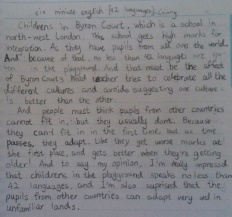 six minute english (42 languages) Conny
Children in Byron Court, which is a school in
north-west London. This school gets high marks for
integration. As they have pupils from all over the world.
And because of that, no less than 42 languages are
in the playground. And that must be the effect
of Byron Court's head teacher tries to celebrate all the
different cultures and avoids suggesting one culture
is better than the other.
And people must think pupils from other countries
cannot fit in, but they usually dont. Because
they can't fit in in the first time, but as time
passes, they adapt. Like they get worse marks at
the first place, and gets better when they're getting
older! And to say my opinion, I'm really impressed
that children in the playground speaks no less than
42 languages, and I'm also suprised that the
pupils from other countries can adapt very well in
unfamiliar lands.